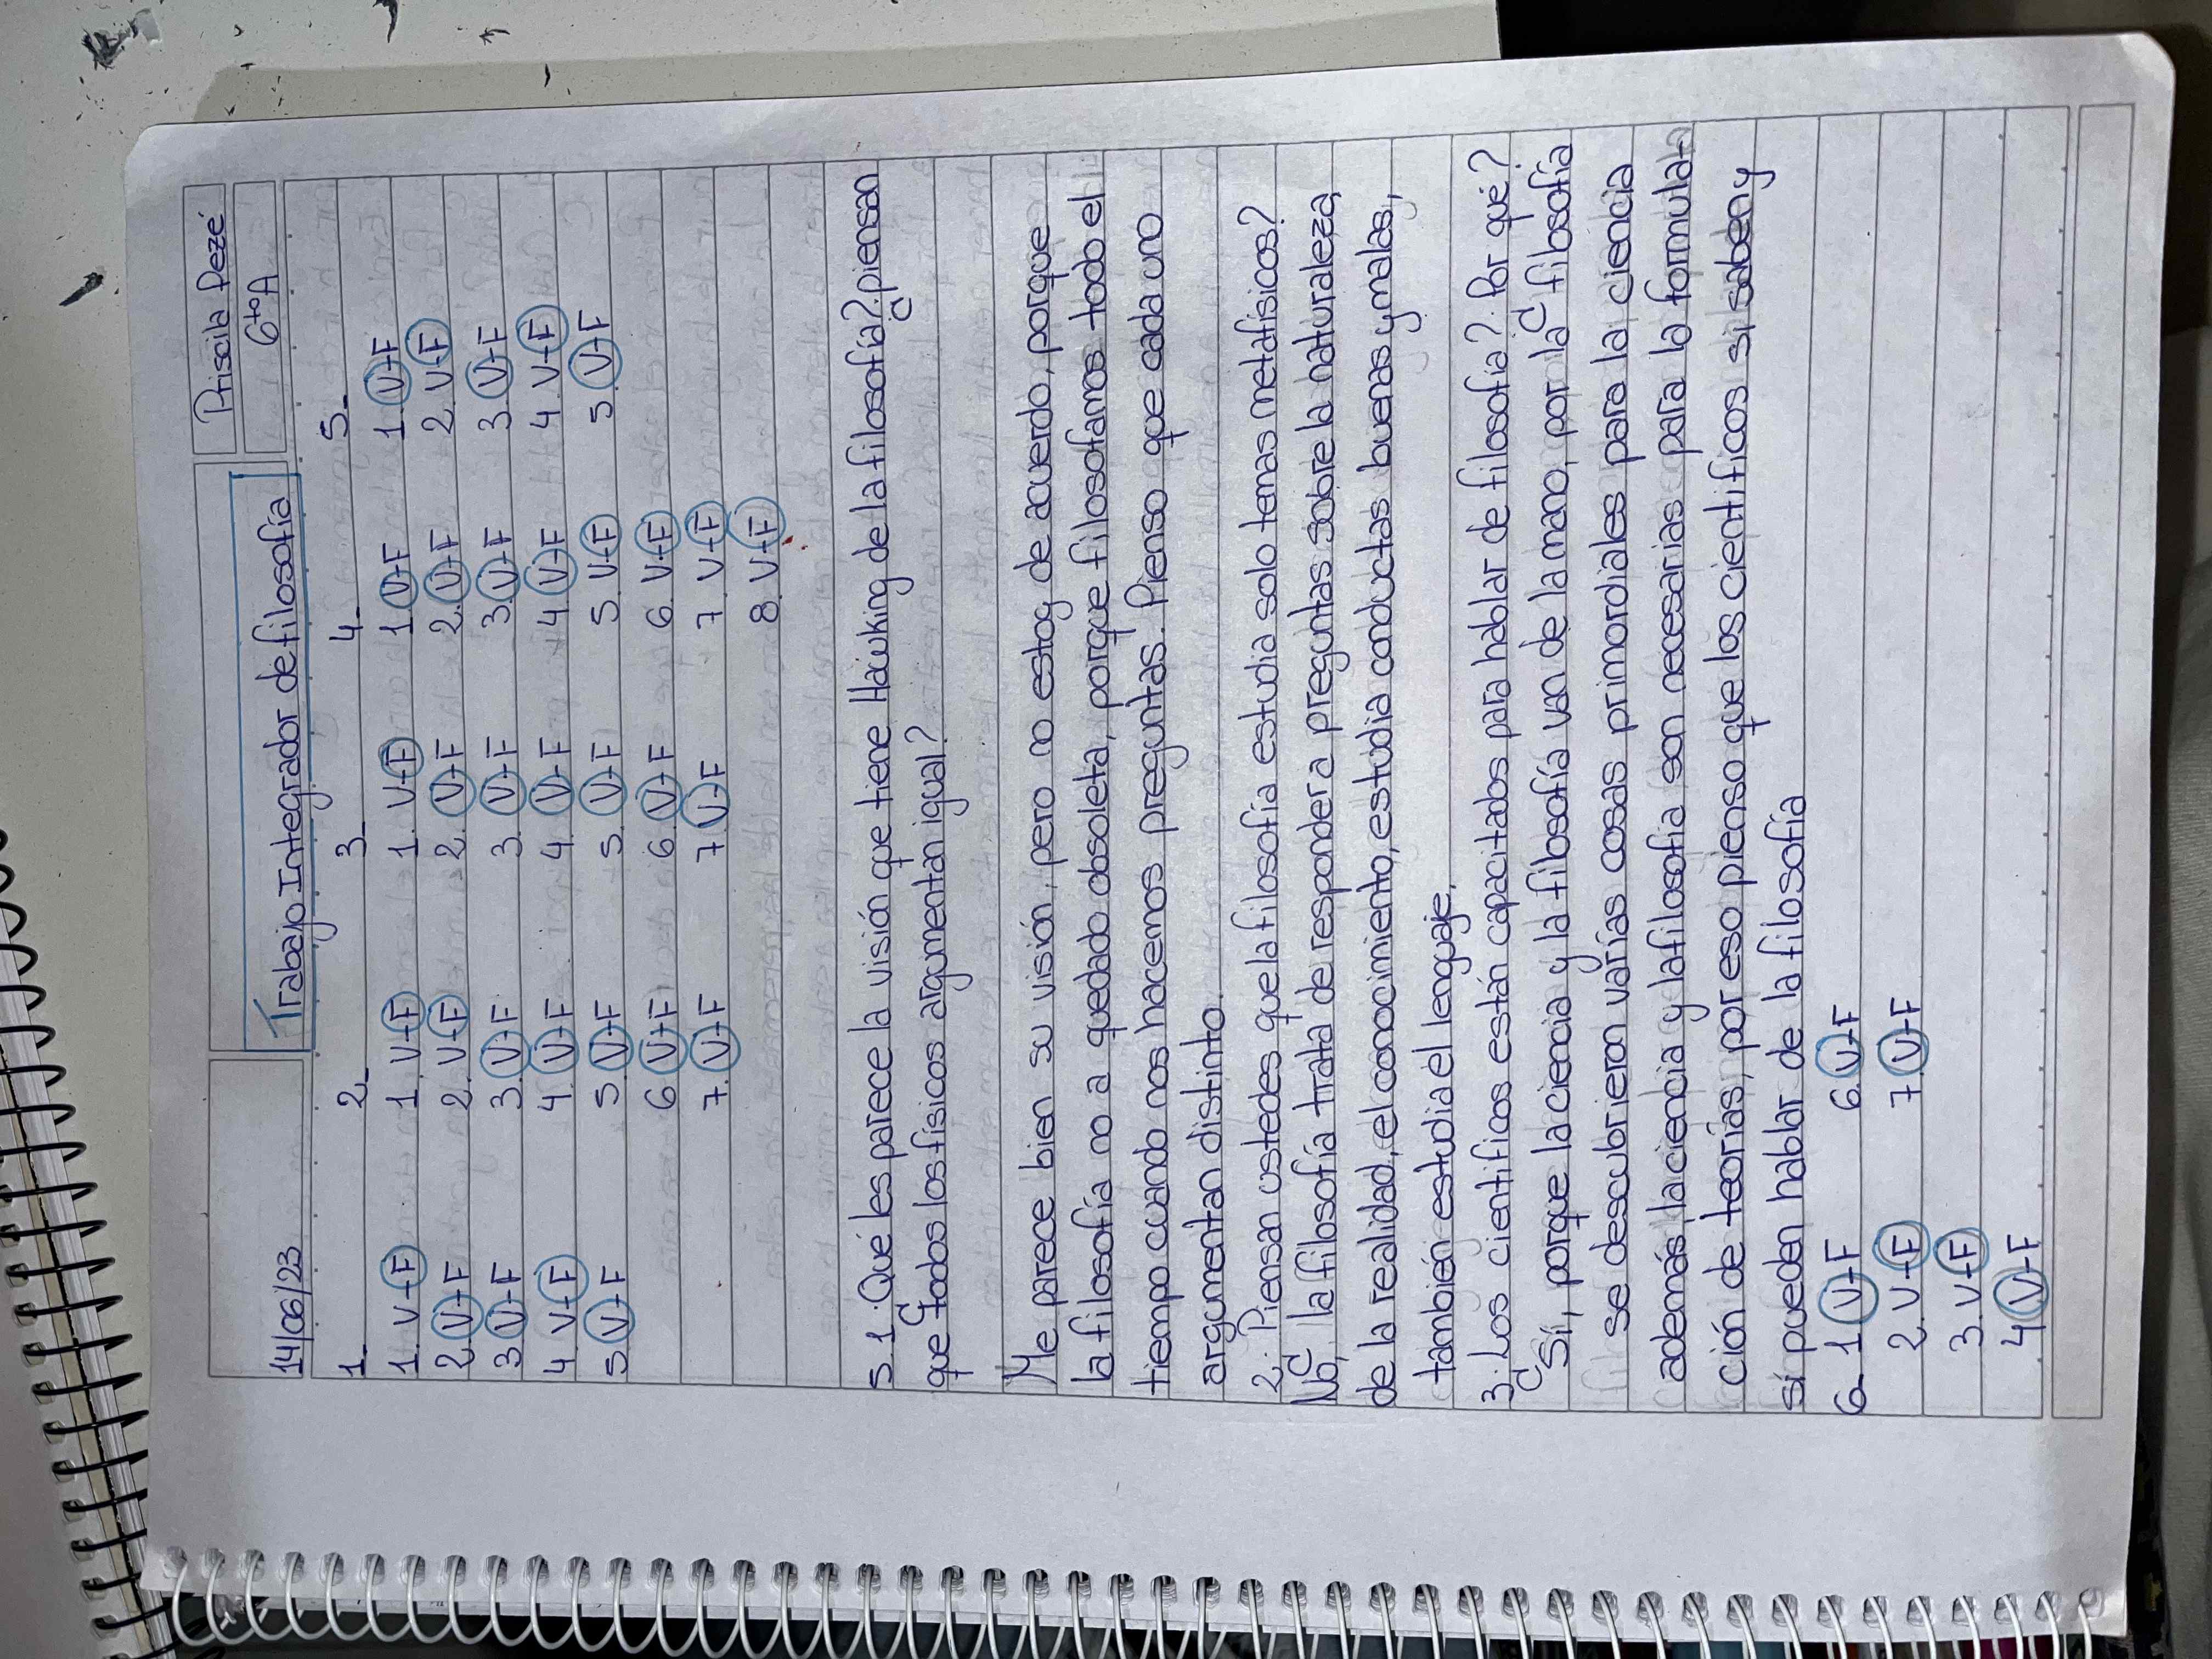 Priscila Pezé
14/06/23 Trabajo Integrador de filosofía 6toA
1_ 2_ 3_ 4_ 5_
1. V-F 1. V-F 1. V-F 1. V-F 1. V-F
2. V-F 2. V-F 2. V-F 2. V-F 2. V-F
3. V-F 3. V-F 3. V-F 3. V-F 3. V-F
4. V-F 4. V-F 4. V-F 4. V-F 4. V-F
5. V-F 5. V-F 5. V-F 5. V-F 5. V-F
6. V-F 6. V-F 6. V-F
7. V-F 7. V-F 7. V-F
8. V-F
5.1. Qué les parece la visión que tiene Hawking de la filosofía? ¿piensan
que todos los fisicos argumentan igual?
Me parece bien su visión, pero no estoy de acuerdo, porque
la filosofía no a quedado obsoleta, porque filosofamos todo el
tiempo cuando nos hacemos preguntas. Pienso que cada uno
argumentan distinto.
2. ¿Piensan ustedes que la filosofía estudia solo temas metafisicos?
No, la filosofía trata de responder a preguntas sobre la naturaleza,
de la realidad, el conocimiento, estudia conductas buenas y malas,
también estudia el lenguaje.
3. ¿Los cientificos están capacitados para hablar de filosofía? ¿Por qué?
Sí, porque la ciencia y la filosofía van de la mano, por la filosofía
se descubrieron varías cosas primordiales para la ciencia
además la ciencia y la filosofía son necesarias para la formula-
ción de teorías, por eso pienso que los cientificos si saben y
sí pueden hablar de la filosofía
6_ 1. V-F 6. V-F
2. V-F 7. V-F
3. V-F
4. V-F